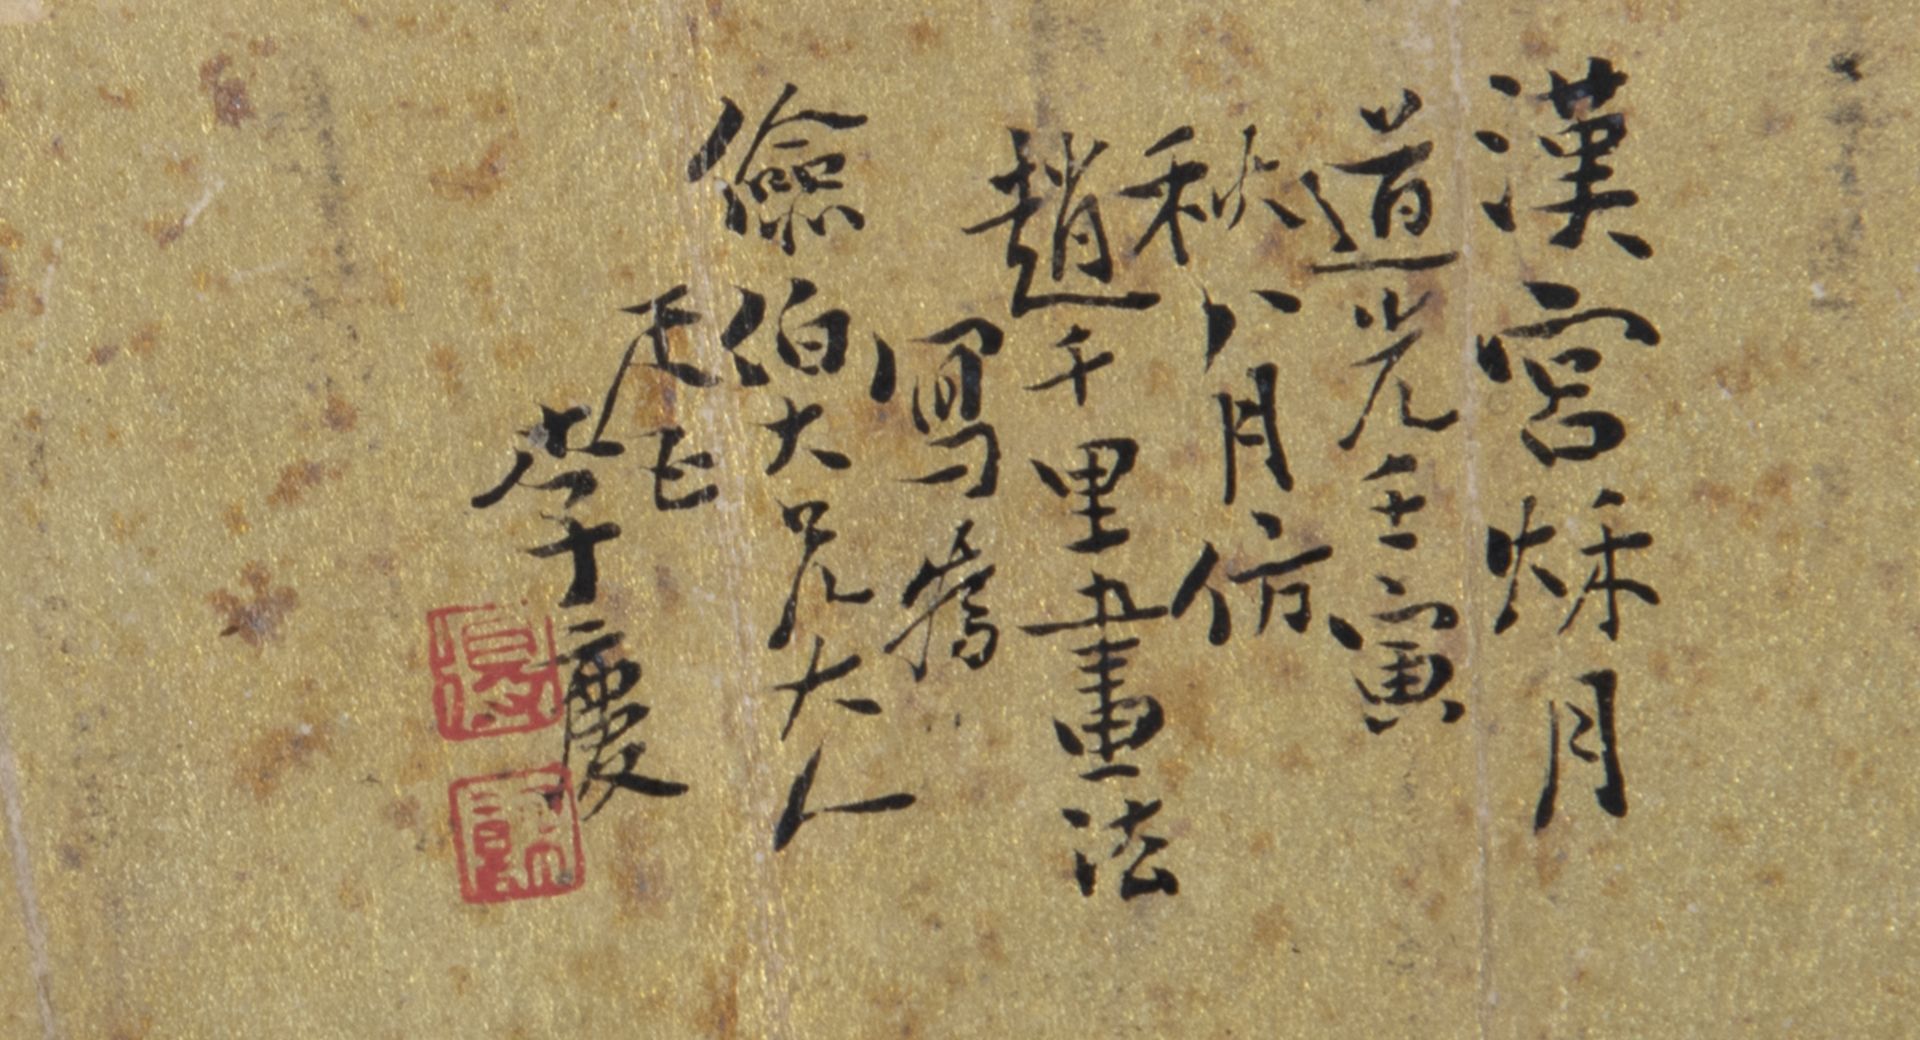 漢宮烁月
道光壬寅
秋八月仿
趙千里畫法
寫應
儉伯大兄大人
疋正
李
慶